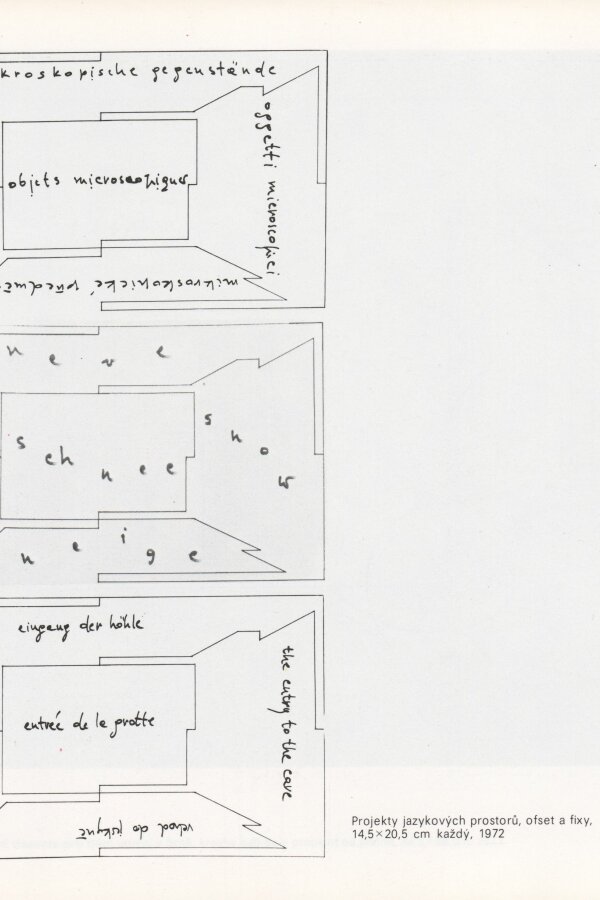 kroskopische gegenstände
oggetti microscopici
objets microscopiques
mikroskopické předmě
neve
snow
schnee
neige
eingang der höhle
the entry to the cave
entrée de la grotte
vchod do jeskyně
Projekty jazykových prostorů, ofset a fixy,
14,5×20,5 cm každý, 1972